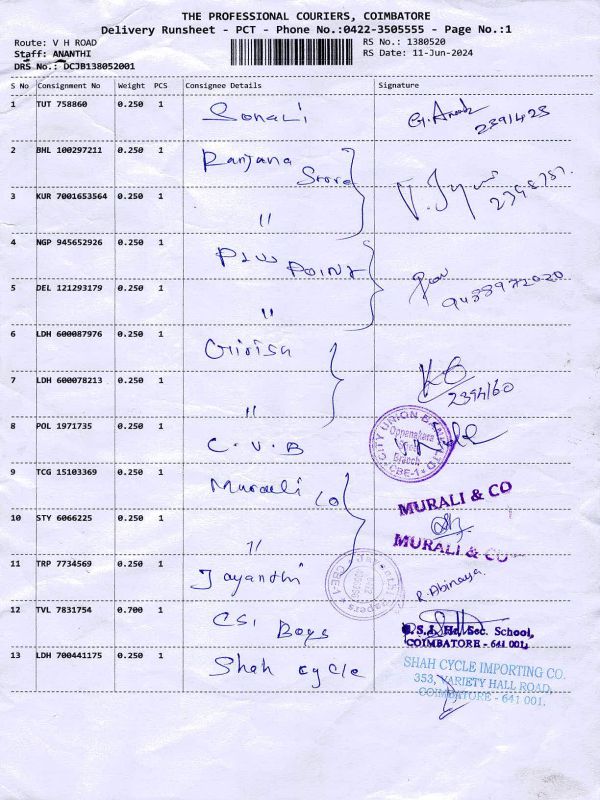 THE PROFESSIONAL COURIERS, COIMBATORE
Delivery Runsheet - PCT - Phone No.:0422-3505555 - Page No.:1
Route: V H ROAD
RS No.: 1380520
Staff: ANANTHI
RS Date: 11-Jun-2024
DRS No.: DCJB138052001
S No Consignment No Weight PCS Consignee Details Signature
1 TUT 758860 0.250 1 Sonali
2391423
2 BHL 100297211 0.250 1 Ranjana Store
3 KUR 7001653564 0.250 1 "
4 NGP 945652926 0.250 1 Pen Point
5 DEL 121293179 0.250 1 "
9438972020
6 LDH 600087976 0.250 1 Girish
7 LDH 600078213 0.250 1 "
2394160
8 POL 1971735 0.250 1 C.U.B
CITY UNION BANK LTD
Oppanakara
Street
Branch
CBE-1
9 TCG 15103369 0.250 1 Murali Co
MURALI & CO
10 STY 6066225 0.250 1 "
MURALI & CO
11 TRP 7734569 0.250 1 Jayanthi
CBE-1
R. Abinaya
12 TVL 7831754 0.700 1 CSI Boys
C.S.I. Hr. Sec. School,
COIMBATORE - 641 001.
13 LDH 700441175 0.250 1 Shah cycle
SHAH CYCLE IMPORTING CO.
353, VARIETY HALL ROAD,
COIMBATORE - 641 001.